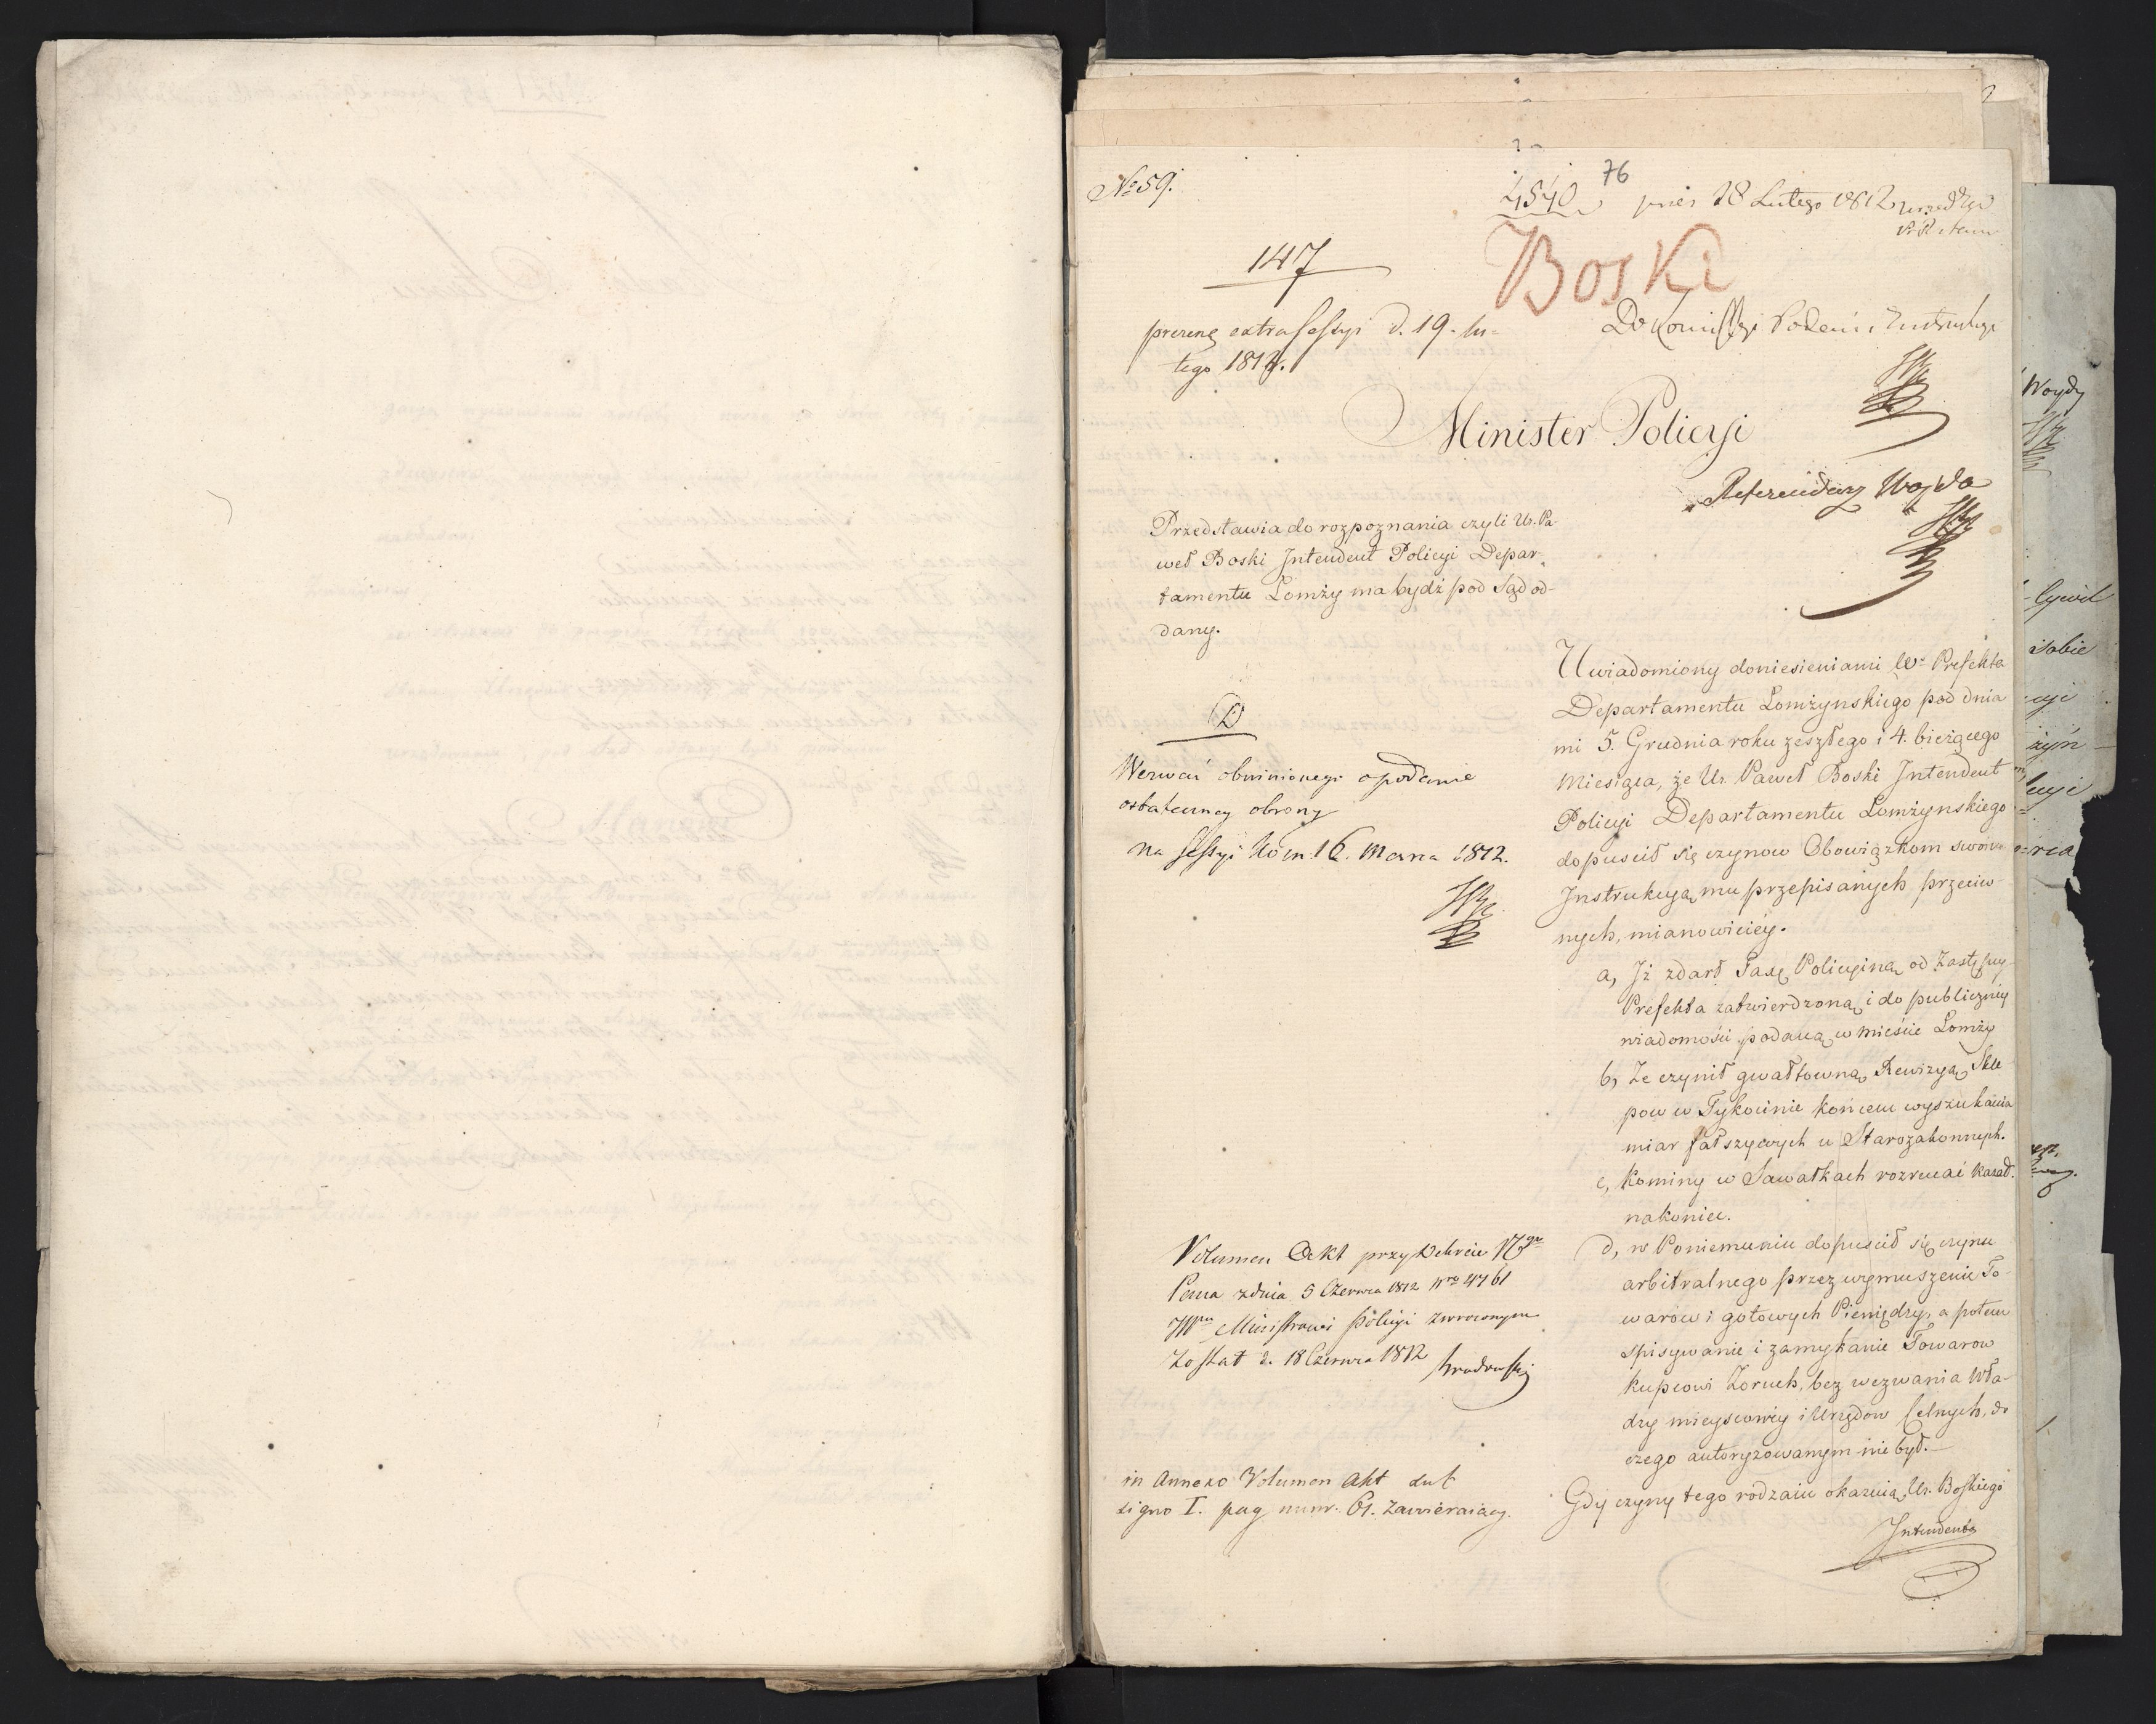 No 59.
76
4540
18 Lutego 1812
Boski
147
extra Sessyi d. 19. Lu-
tego 1812.
Do Komissyi Podań i Instrukcyi
Minister Policyi
Referendarz Woyda
Przedstawia do rozpoznania czyli Ur. Pa-
weł Boski Jntendent Policyi Depar-
tamentu Łomży ma bydź pod Sąd od-
dany.
D
Wezwać obwinionego o podanie
ostateczney obrony
na Sessyi Kom. 16. Marca 1812.
Uwiadomiony doniesieniami Wo Prefekta
Departamentu Łomżynskiego pod dnia
mi 5. Grudnia roku zeszłego i 4. bieżącego
Miesiąca, że Ur. Paweł Boski Jntendent
Policyi Departamentu Łomżynskiego
dopuścił się czynow Obowiązkom swoim
Jnstrukcyą mu przepisanych przeciw-
nych, mianowiciey.
a, Jż zdarł Taxę Policyiną od Zastępcy
Prefekta zatwierdzoną i do publiczney
wiadomości podaną w mieście Łomży
b, Że czynił gwałtowną Rewizyą Skle
pow w Tykocinie końcem wyszukania
miar fałszywych u Starozakonnych.
c, Kominy w Sawałkach rozrucać kazał.
nakoniec.
d, w Poniemuniu dopuścił się czynu
arbitralnego przez wymuszenie To-
warow i gotowych Pieniędzy, a potem
spisywanie i zamykanie Towarow
Kupcowi Zoruch, bez wezwania Wła-
dzy mieyscowey i Urzędow Celnych, do
czego autoryzowanym nie był.—
Gdy czyny tego rodzaiu okazuią Ur. Boskiego
Jntendenta
Volumen Akt przy Dekrecie
z dnia 5 Czerwca 1812 Nro 4761
Ministrowi Policyi zwroconym
został d. 18 Czerwca 1812
in Annexo Volumen Akt sub
signo I. pag numr. 61. zawieraiący.